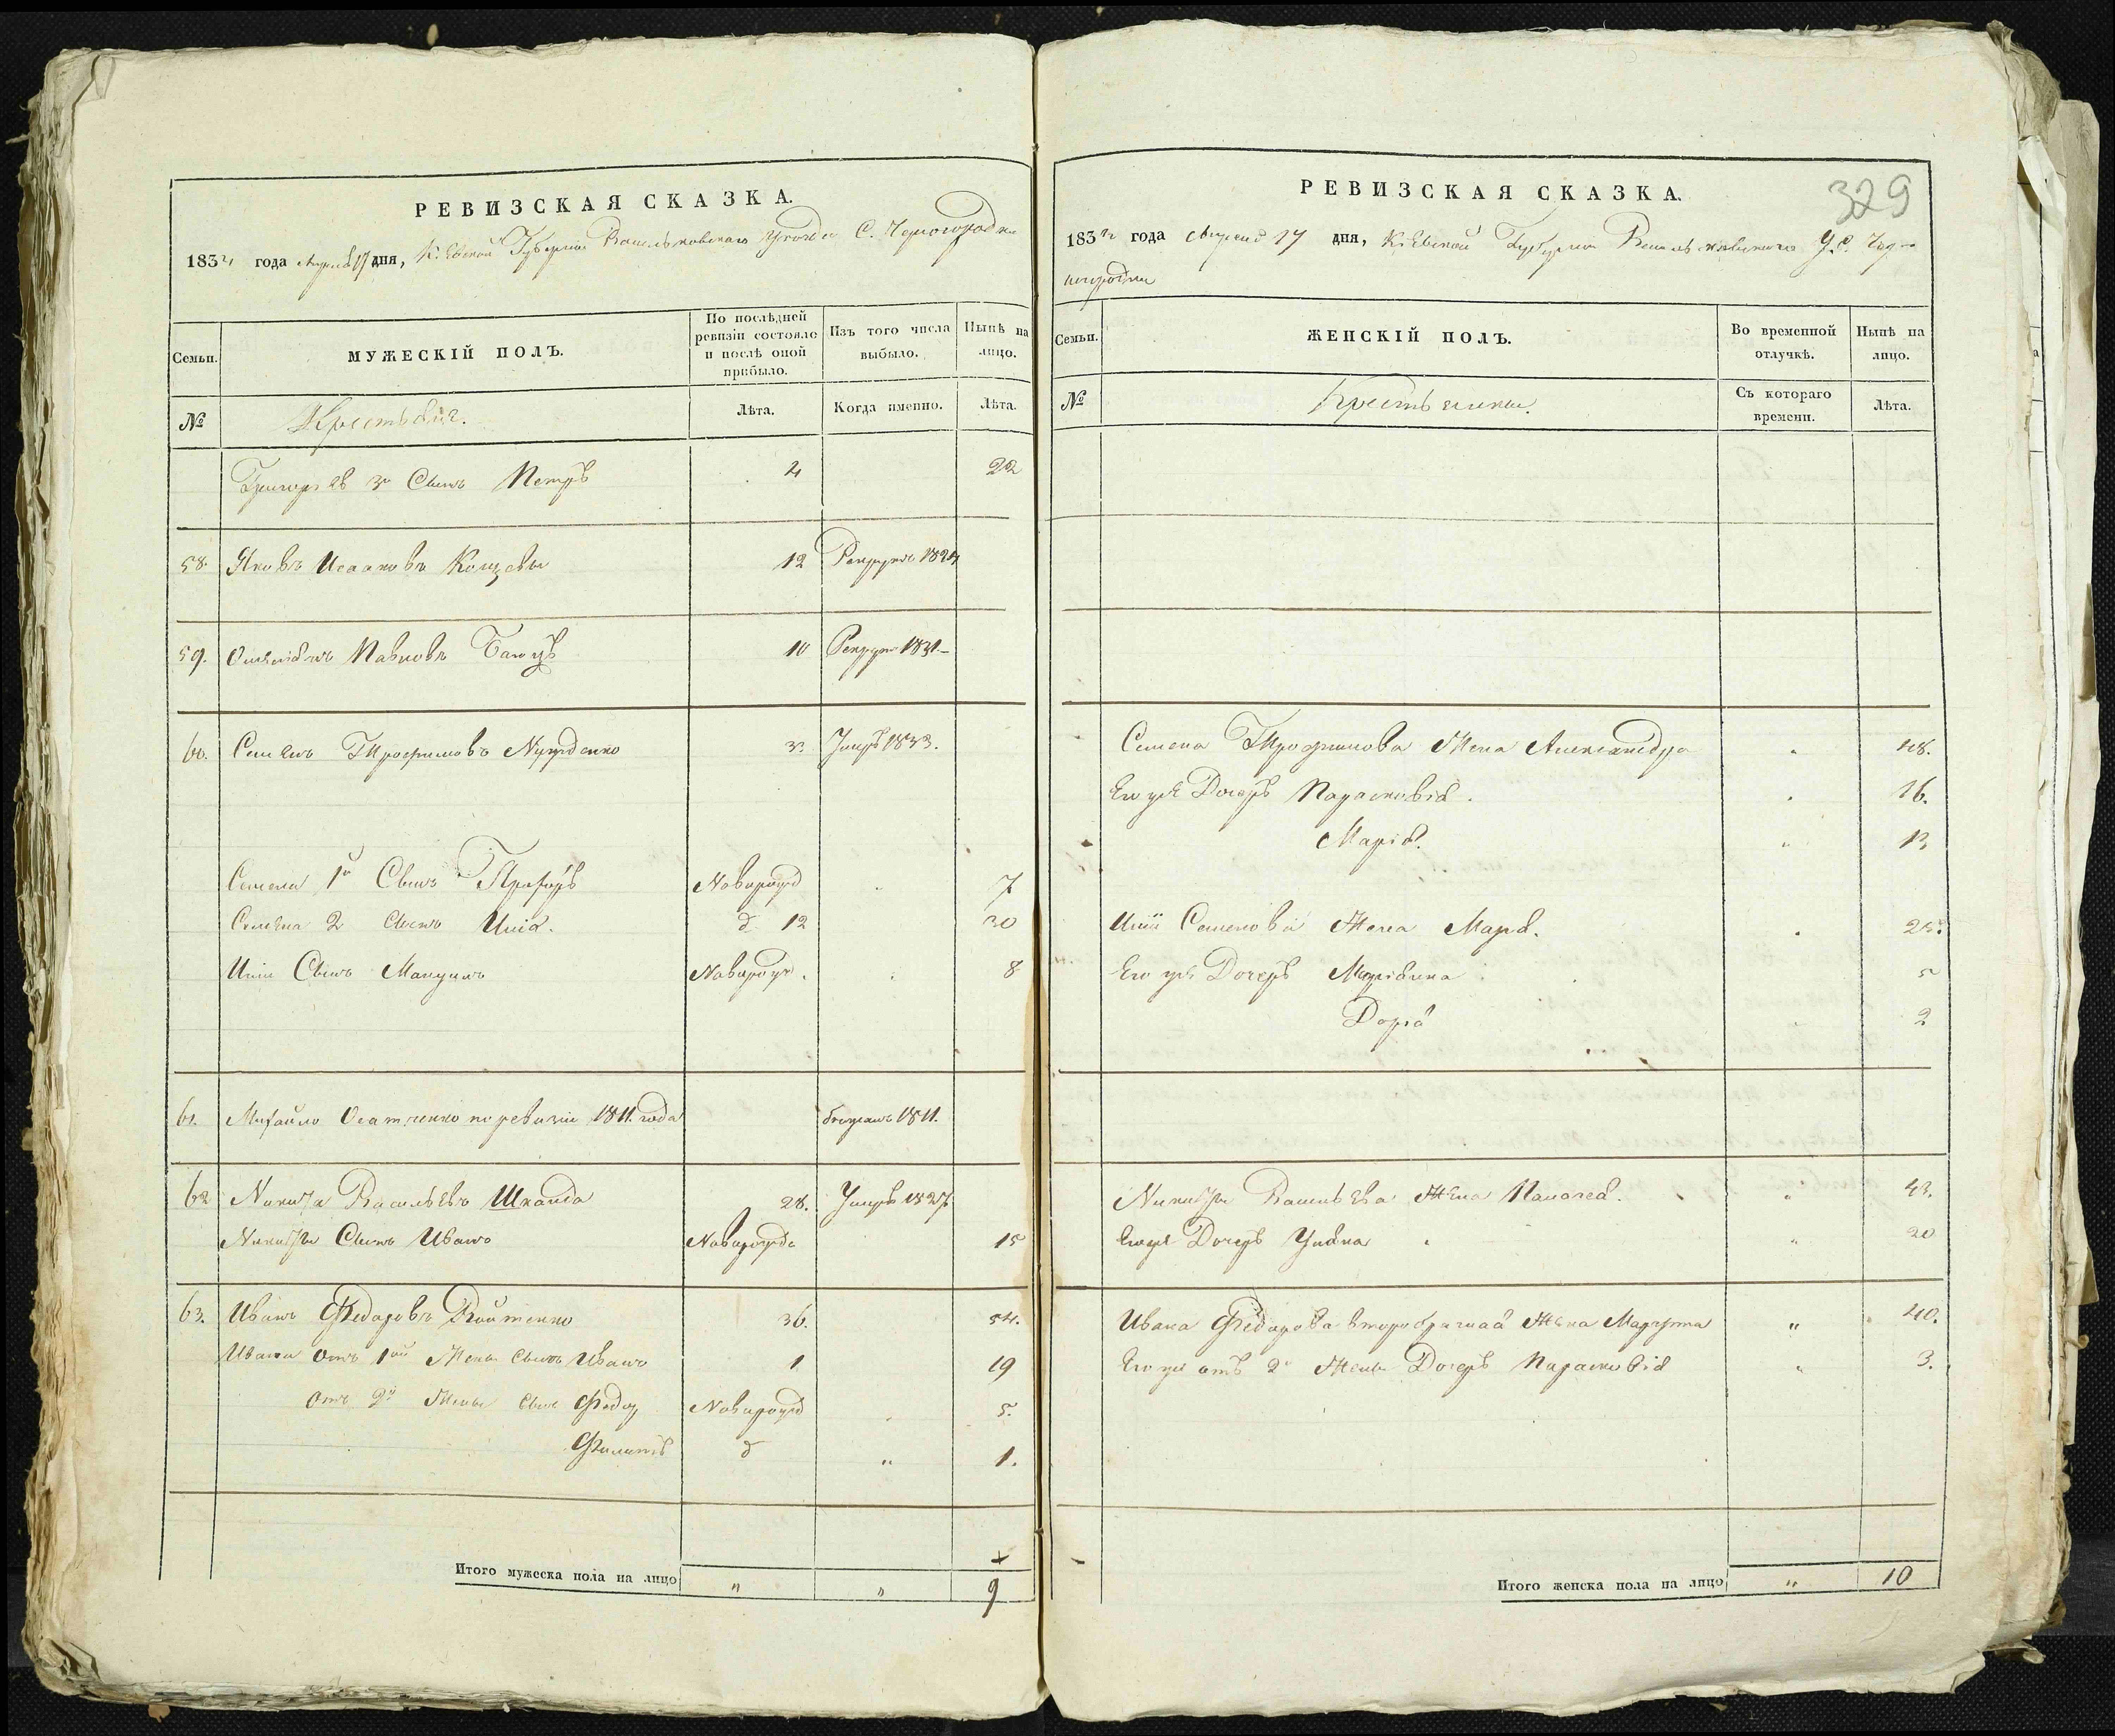 РЕВИЗСКАЯ СКАЗКА.
1834 года Апреля 17 дня, Кіевской Губерніи Васильковскаго уезда С. Черногородки
Семьи.
МУЖЕСКІЙ ПОЛЪ.
По послѣдней ревизіи состояло и послѣ оной прибыло.
Изъ того числа выбыло.
Нынѣ на лицо.
№
Крестьяне.
Лѣта.
Когда именно.
Лѣта.
3й Сынъ Петръ 4 22
58. Яковъ Исааковъ 12 Рекрутъ 1824
59. Павловъ 10 Рекрутъ 1831.
60. Семенъ Трофимовъ 3 Умеръ 1833.
Семена 1й Сынъ Прохоръ Наворожд 7
Семена 2 Сынъ Илія. д 12 30
Иліи Сынъ Наворожд. 8
61. Михайло по ревизіи 1811. года бежалъ 1811.
62 Никита Васильевъ Шканда 28. Умеръ 1827.
Никиты Сынъ Иванъ Наворождъ 15
63. Иванъ Федоровъ Войтенко 36. 54.
Ивана Отъ 1ой Жены сынъ Иванъ 1 19
Отъ 2й Жены сынъ Федор Наворожд 5.
Филипъ д " 1.
Итого мужеска пола на лицо " " 9
329
РЕВИЗСКАЯ СКАЗКА.
1834 года Апреля 17 дня, Кіевской Губерніи Васильковскаго У. С. Чер-
ногородки
Семьи.
ЖЕНСКІЙ ПОЛЪ.
Во временной отлучкѣ.
Нынѣ на лицо.
№
Крестьянки.
Съ котораго времени.
Лѣта.
Семена Трофимова Жена Александра " 48.
Его же Дочерь Парасковія. 16.
Марія. " 13
Иліи Семенова Жена Маря. 25.
Его же Дочерь 5
Дарія 2
Никиты Васильева Жена Палагея. " 43.
Его же Дочерь Уляна " 20
Ивана Федорова второбрачная Жена " 40.
Его же отъ 2й Жены Дочерь Парасковія " 3.
Итого женска пола на лицо " 10